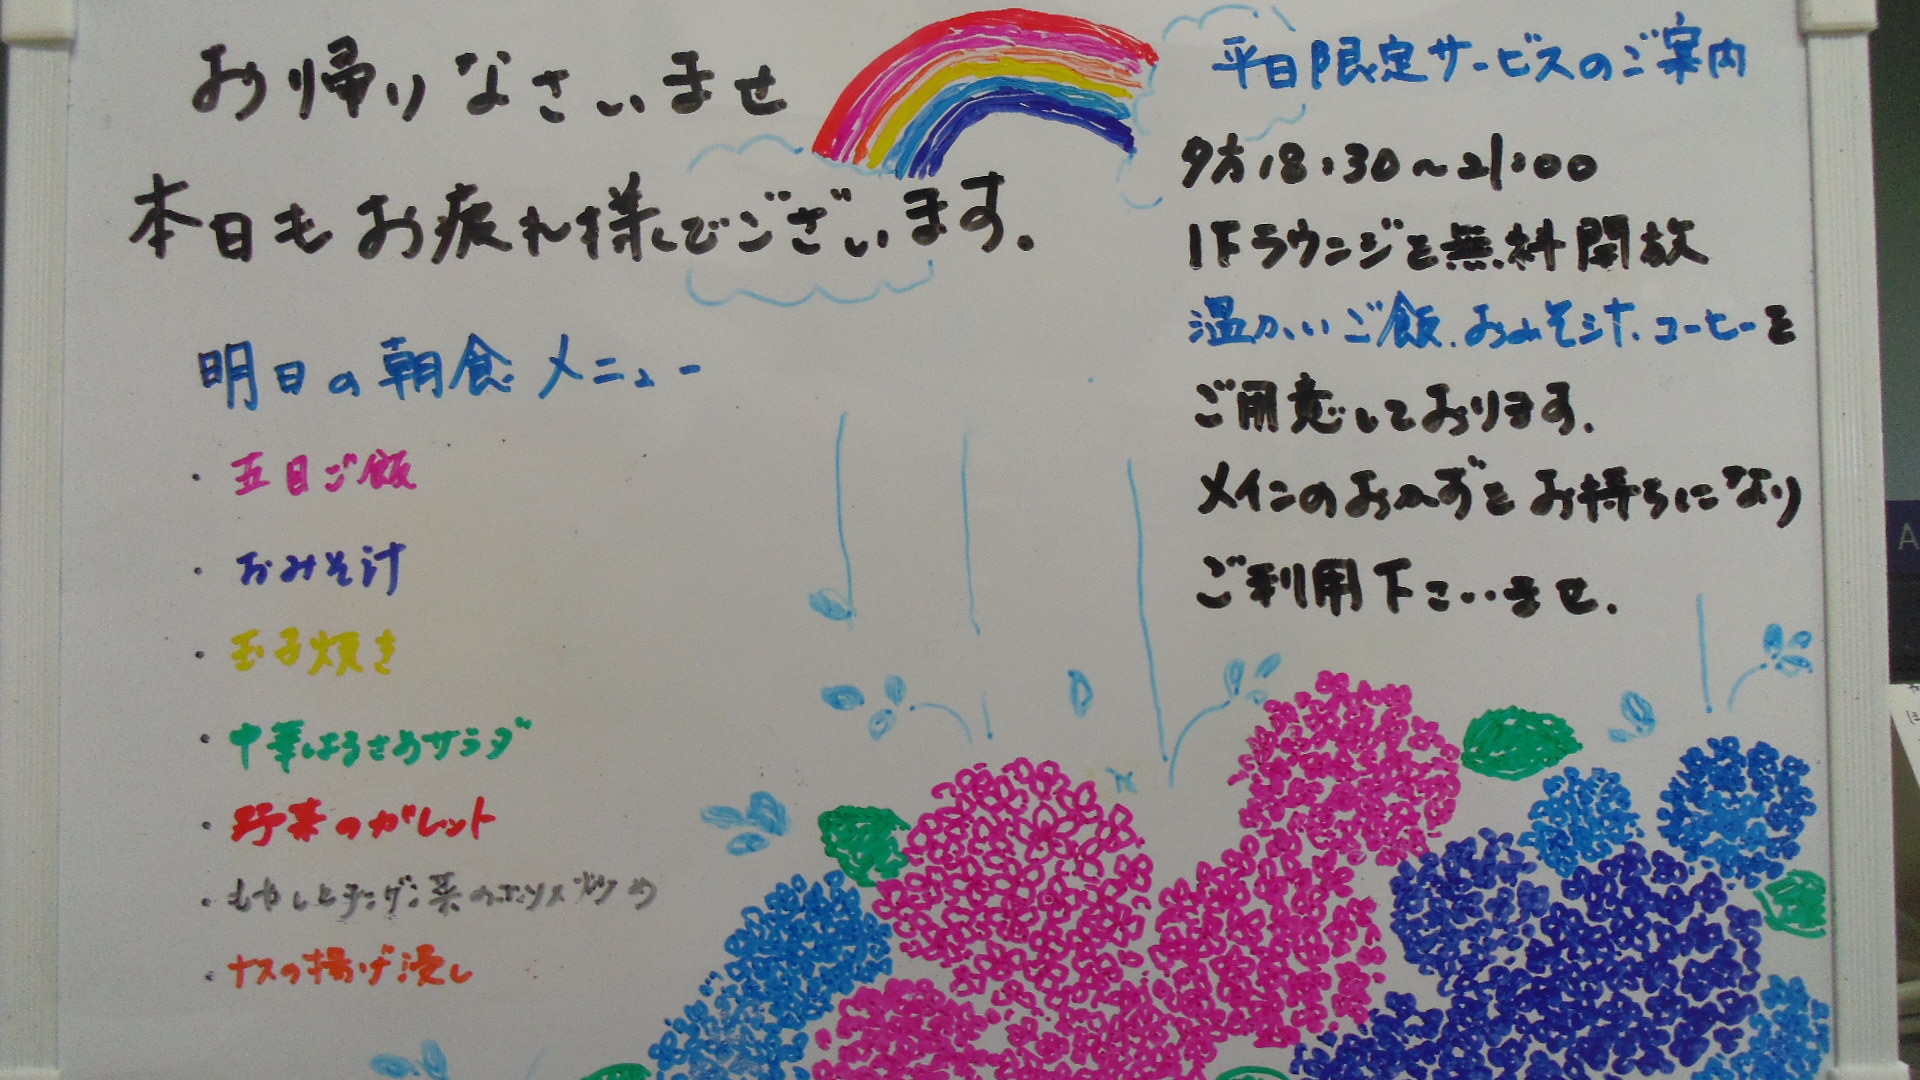 お帰りなさいませ
本日もお疲れ様でございます。
明日の朝食メニュー
・五目ご飯
・おみそ汁
・玉子焼き
・中華はるさめサラダ
・野菜のガレット
・もやしとチンゲン菜のポン炒め
・ナスの揚げ浸し
平日限定サービスのご案内
夕方18:30～21:00
1Fラウンジを無料開放
温かいご飯、おみそ汁、コーヒーを
ご用意しております。
メインのおかずをお持ちになり
ご利用下さいませ。